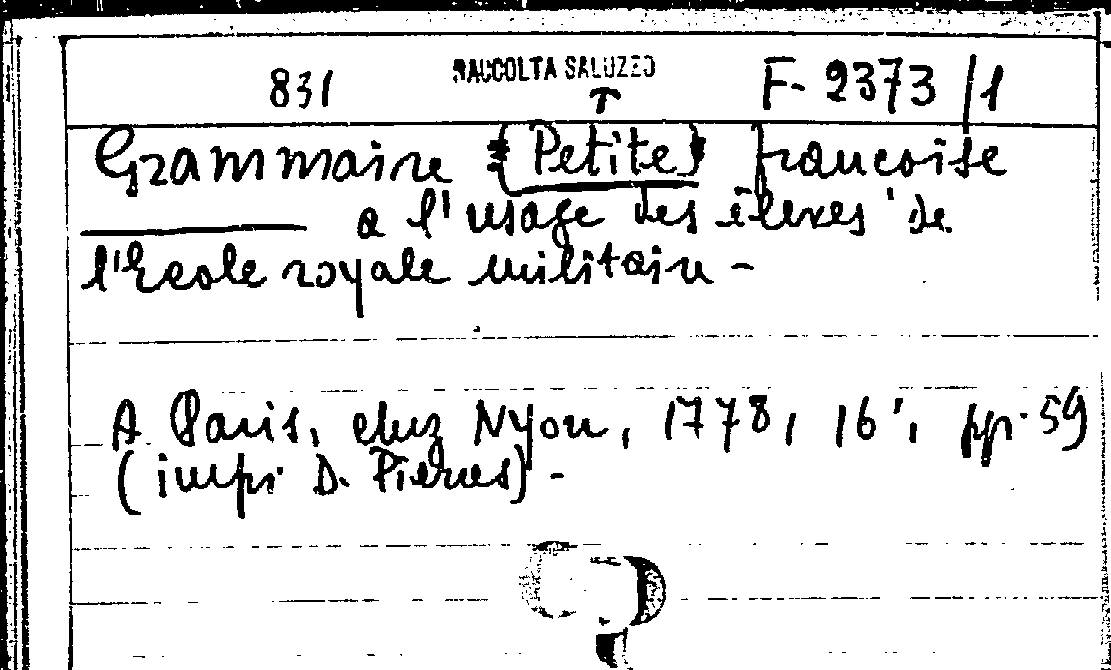 831 RACCOLTA SALUZZO F- 2373/1
T
Grammaire (Petite) françoise
a l'usage des élèves de
l'Ecole royale militaire -
A Paris, chez Nyon, 1778, 16°, pp. 59
(impr. D. Pierres) -